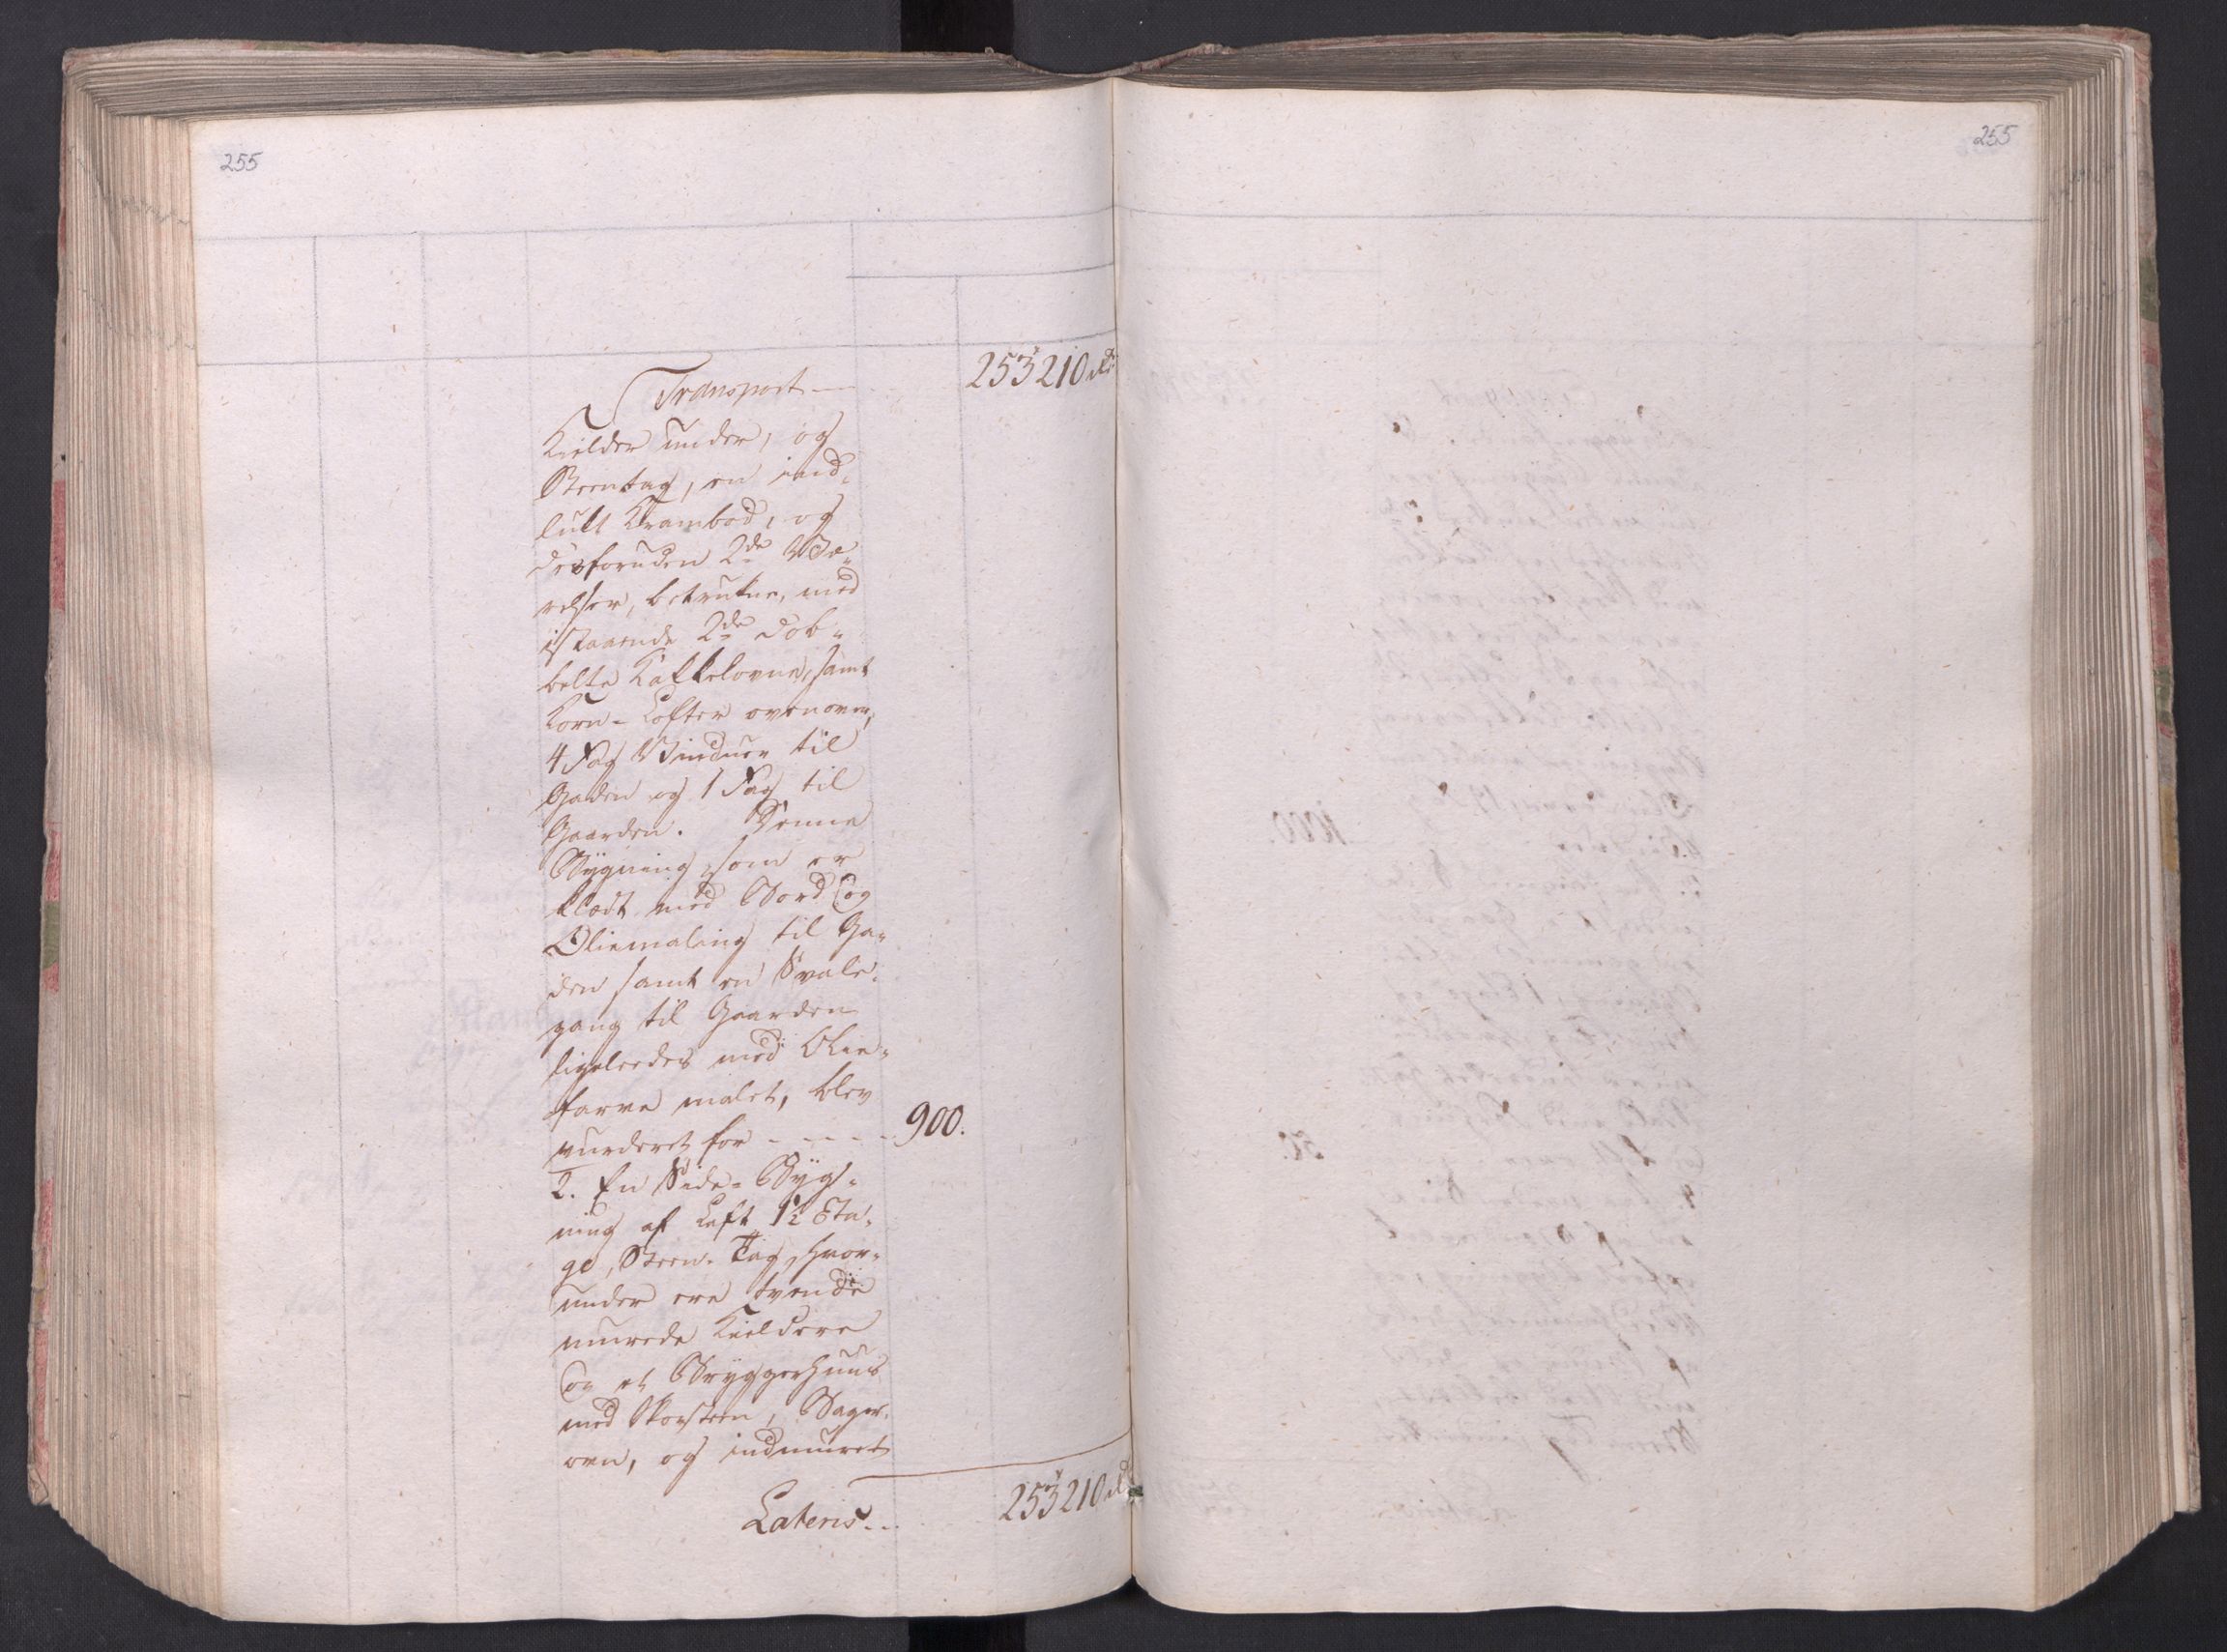 255
255
Transport — 253210 rdr
Kielder under, og
Steentag, en ind-
lukt Krambod, og
desforuden 2de Væ-
relser, betrukne, med
istaaende 2de dob-
belte Kakkelovne, samt
Korn-Lofter ovenover,
4 Fag Vinduer til
Gaden og 1 Fag til
Gaarden. Denne
Bygning, som er
klædt med Bord og
Oliemaling til Ga-
den samt en Svale-
gang til Gaarden
ligeledes med Olie-
farve malet, blev
vurderet for - - - - 900.
2. En Side-Byg-
ning af Laft 1½ Eta-
ge, Steen-Tag, hvor-
under ere tvende
murede Kieldere
og et Bryggerhuus
med Skorsteen, Bager-
ovn, og indmuret
Lateris - - 253210 rd